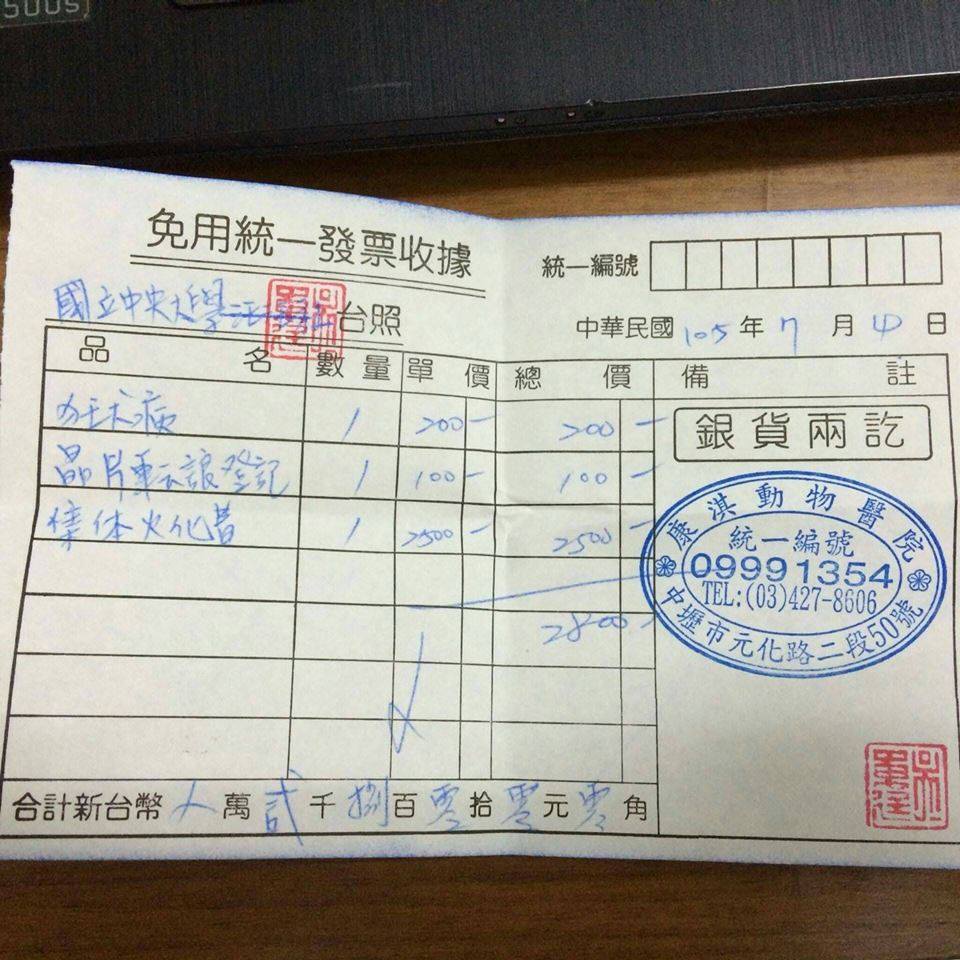 500s
免用統一發票收據
統一編號
國立中央大學 台照
中華民國 105 年 7 月 4 日
品名 數量 單價 總價 備註
狂犬病 1 200- 200-
銀貨兩訖
晶片轉讓登記 1 100- 100-
集体火化費 1 2500- 2500-
2800-
康淇動物醫院
統一編號
09991354
TEL:(03)427-8606
中壢市元化路二段50號
合計新台幣 萬 貳 千 捌 百 零 拾 零 元 零 角